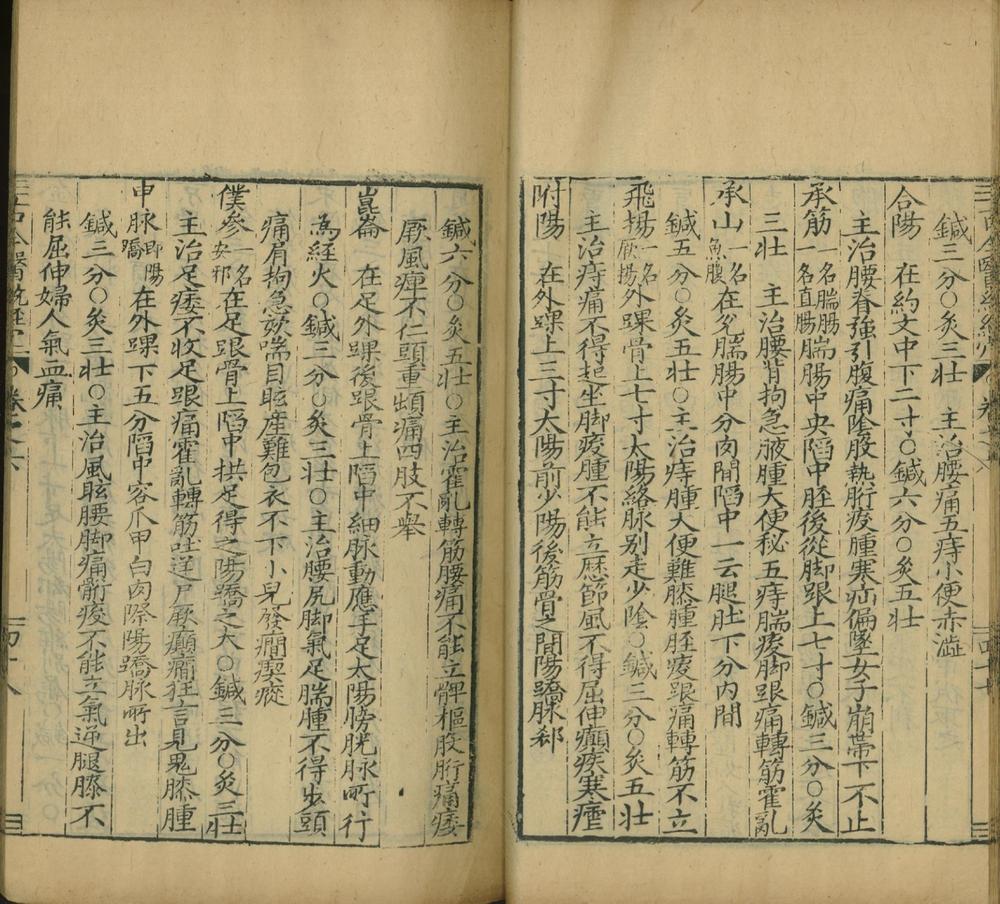 鍼三分○灸三壯　主治腰痛五痔小便赤澁
合陽　在約文中下二寸○鍼六分○灸五壯
主治腰脊強引腹痛陰股熱胻痠腫寒疝偏墜女子崩帶下不止
承筋一名腨腸一名直腸腨腸中央陷中脛後從脚跟上七寸○鍼三分○灸
三壯　主治腰背拘急腋腫大便秘五痔腨痠脚跟痛轉筋霍亂
承山一名魚腹在兌腨腸中分肉間陷中一云腿肚下分肉間
鍼五分○灸五壯○主治痔腫大便難膝腫脛痠跟痛轉筋不立
飛揚一名厥揚外踝骨上七寸太陽絡脉別走少陰○鍼三分○灸五壯
主治痔痛不得起坐脚痠腫不能立歷節風不得屈伸癲疾寒瘧
附陽　在外踝上三寸太陽前少陽後筋骨之間陽蹻脉郄
鍼六分○灸五壯○主治霍亂轉筋腰痛不能立髀樞股胻痛痿
厥風痺不仁頭重䪼痛四肢不舉
崑崙　在足外踝後跟骨上陷中細脉動應手足太陽膀胱脉所行
爲經火○鍼三分○灸三壯○主治腰尻脚氣足腨腫不得步頭
痛肩拘急欬喘目眩產難包衣不下小兒發癇瘈瘲
僕參一名安邪在足跟骨上陷中拱足得之陽蹻之本○鍼三分○灸三壯
主治足痿不收足跟痛霍亂轉筋吐逆尸厥癲癇狂言見鬼膝腫
申脉即陽蹻在外踝下五分陷中容爪甲白肉際陽蹻脉所出
鍼三分○灸三壯○主治風眩腰脚痛胻痠不能立氣逆腿膝不
能屈伸婦人氣血痛
四十七
四十八